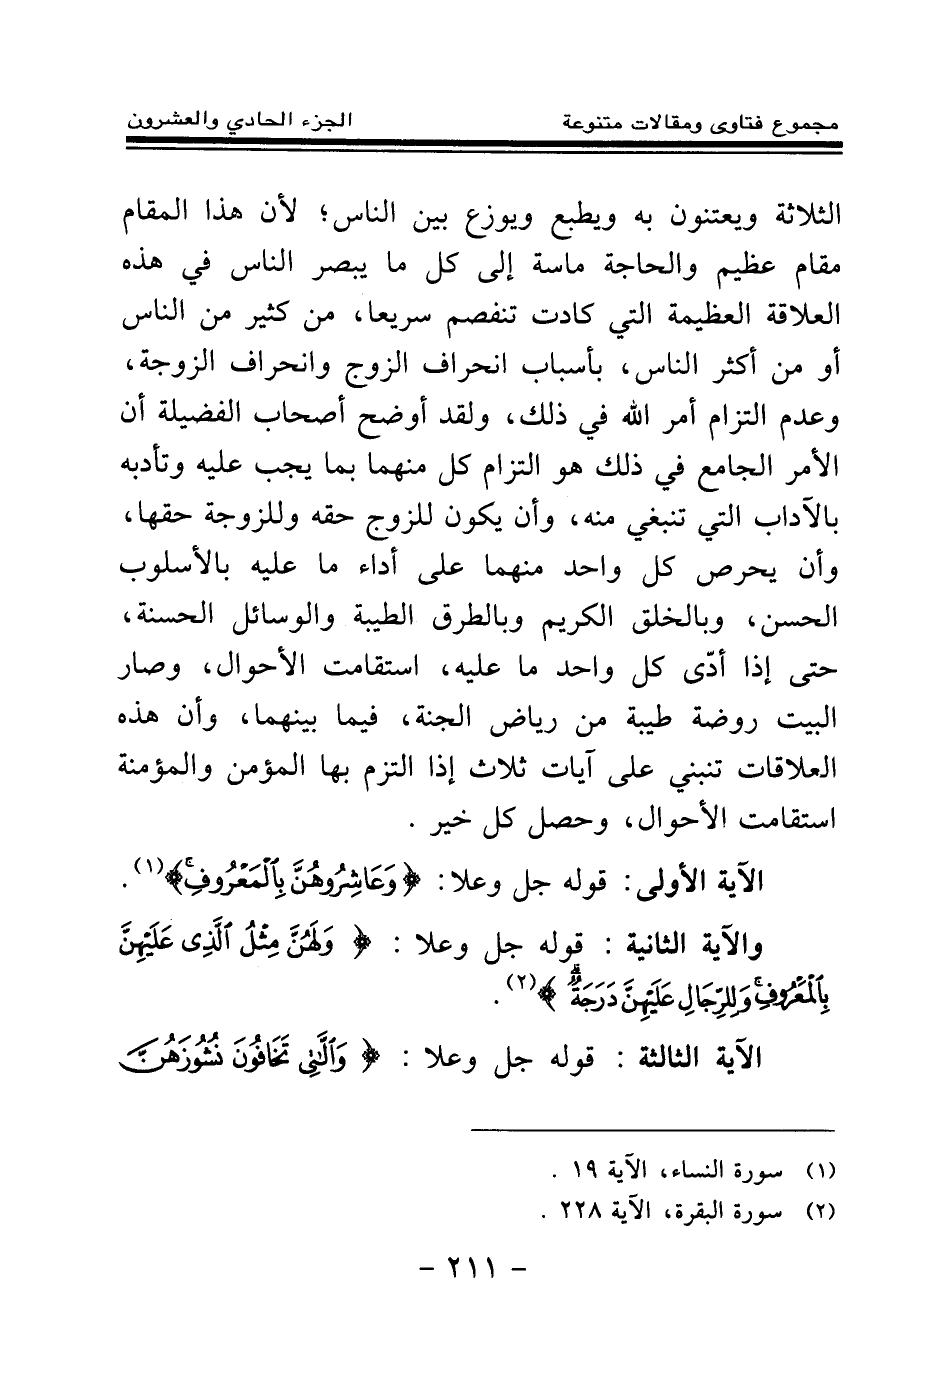 مجموع فتاوى ومقالات متنوعة الجزء الحادي والعشرون
الثلاثة ويعتنون به ويطبع ويوزع بين الناس؛ لأن هذا المقام
مقام عظيم والحاجة ماسة إلى كل ما يبصر الناس في هذه
العلاقة العظيمة التي كادت تنفصم سريعا، من كثير من الناس
أو من أكثر الناس، بأسباب انحراف الزوج وانحراف الزوجة،
وعدم التزام أمر الله في ذلك، ولقد أوضح أصحاب الفضيلة أن
الأمر الجامع في ذلك هو التزام كل منهما بما يجب عليه وتأدبه
بالآداب التي تنبغي منه، وأن يكون للزوج حقه وللزوجة حقها،
وأن يحرص كل واحد منهما على أداء ما عليه بالأسلوب
الحسن، وبالخلق الكريم وبالطرق الطيبة والوسائل الحسنة،
حتى إذا أدّى كل واحد ما عليه، استقامت الأحوال، وصار
البيت روضة طيبة من رياض الجنة، فيما بينهما، وأن هذه
العلاقات تنبني على آيات ثلاث إذا التزم بها المؤمن والمؤمنة
استقامت الأحوال، وحصل كل خير .
الآية الأولى: قوله جل وعلا: ﴿ وَعَاشِرُوهُنَّ بِٱلْمَعْرُوفِۚ ﴾(١).
والآية الثانية : قوله جل وعلا : ﴿ وَلَهُنَّ مِثْلُ ٱلَّذِى عَلَيْهِنَّ
بِٱلْمَعْرُوفِۚ وَلِلرِّجَالِ عَلَيْهِنَّ دَرَجَةٌۗ ﴾(٢).
الآية الثالثة : قوله جل وعلا : ﴿ وَٱلَّٰتِى تَخَافُونَ نُشُوزَهُنَّ
(١) سورة النساء، الآية ١٩ .
(٢) سورة البقرة، الآية ٢٢٨ .
- ٢١١ -